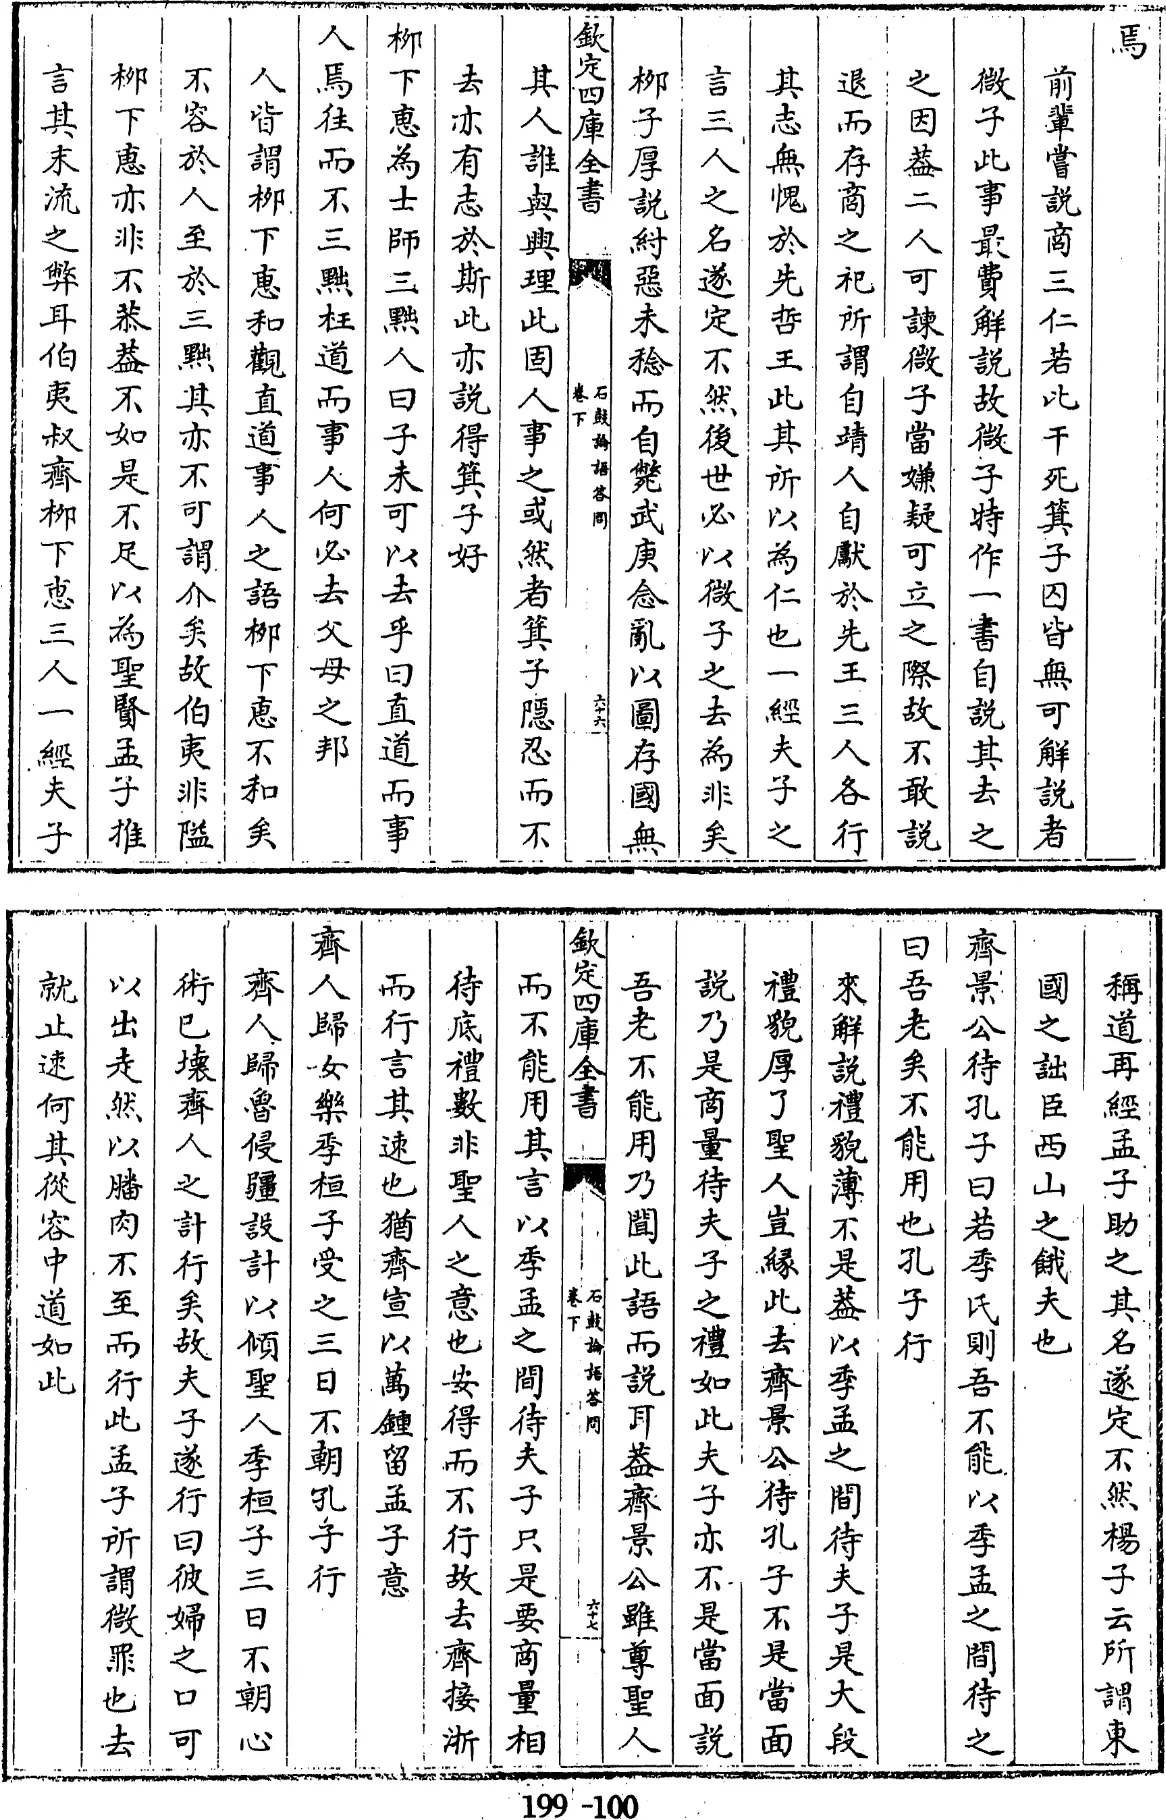 焉
前輩嘗説商三仁若比干死箕子囚皆無可解説者
微子此事最費解説故微子特作一書自説其去之
之因葢二人可諫微子當嫌疑可立之際故不敢説
退而存商之祀所謂自靖人自獻於先王三人各行
其志無愧於先哲王此其所以為仁也一經夫子之
言三人之名遂定不然後世必以微子之去為非矣
栁子厚説紂惡未稔而自斃武庚念亂以圖存國無
欽定四庫全書
石鼓論語答問
卷下
六十六
其人誰與興理此固人事之或然者箕子隠忍而不
去亦有志於斯此亦説得箕子好
栁下惠為士師三黜人曰子未可以去乎曰直道而事
人焉往而不三黜枉道而事人何必去父母之邦
人皆謂栁下惠和觀直道事人之語栁下惠不和矣
不容於人至於三黜其亦不可謂介矣故伯夷非隘
栁下惠亦非不恭葢不如是不足以為聖賢孟子推
言其末流之弊耳伯夷叔齊栁下惠三人一經夫子
稱道再經孟子助之其名遂定不然楊子云所謂東
國之詘臣西山之餓夫也
齊景公待孔子曰若季氏則吾不能以季孟之間待之
曰吾老矣不能用也孔子行
來解説禮貌薄不是葢以季孟之間待夫子是大段
禮貌厚了聖人豈縁此去齊景公待孔子不是當面
説乃是商量待夫子之禮如此夫子亦不是當面説
吾老不能用乃聞此語而説耳葢齊景公雖尊聖人
欽定四庫全書
石鼓論語答問
卷下
六十七
而不能用其言以季孟之間待夫子只是要商量相
待底禮數非聖人之意也安得而不行故去齊接淅
而行言其速也猶齊宣以萬鍾留孟子意
齊人歸女樂季桓子受之三日不朝孔子行
齊人歸魯侵疆設計以傾聖人季桓子三日不朝心
術已壊齊人之計行矣故夫子遂行曰彼婦之口可
以出走然以膰肉不至而行此孟子所謂微罪也去
就止速何其從容中道如此
199-100